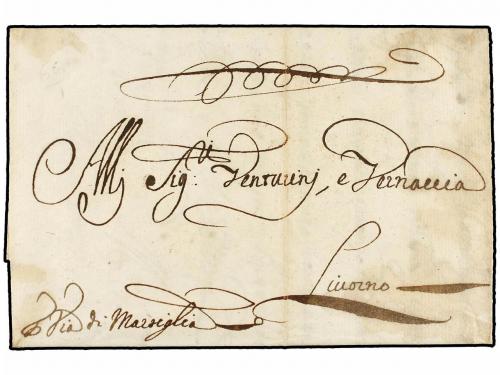 Alli Sig.ri Venturinj, e Vernaccia
Livorno
Via di Marsiglia